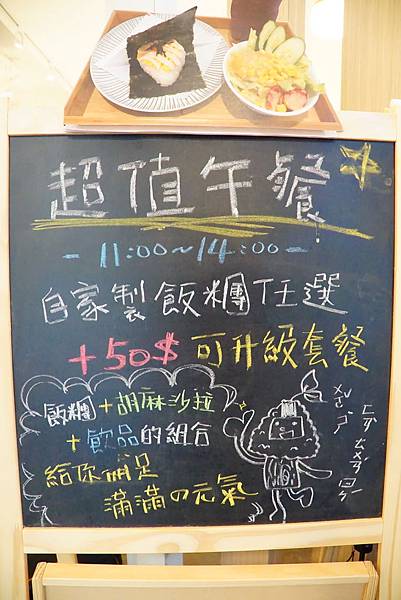 超值午餐
- 11:00~14:00 -
自家製飯糰任選
+50$ 可升級套餐
飯糰+胡麻沙拉
+飲品的組合
給你滿足
滿滿の元氣